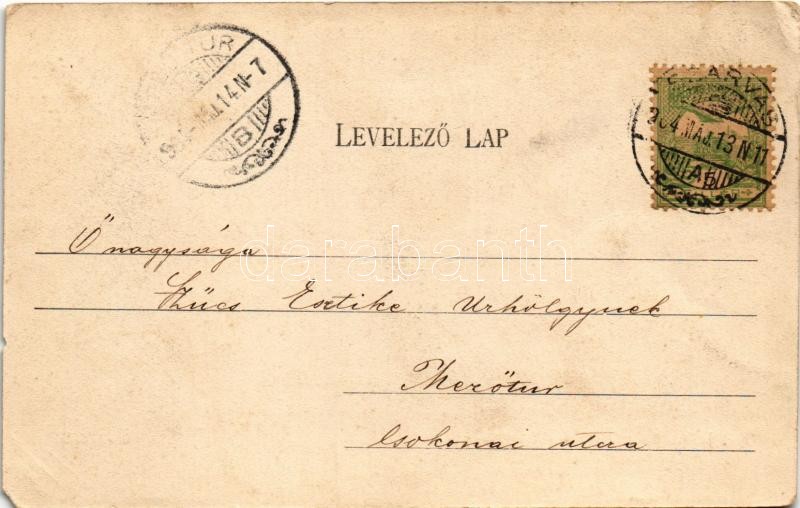 TUR
MÁJ. 14 N-7
B
LEVELEZŐ LAP
SZARVAS
904 MÁJ. 13 N 11
Ő nagysága
Szücs Esztike Urhölgynek
Mezőtur
Csokonai utcza
darabanth